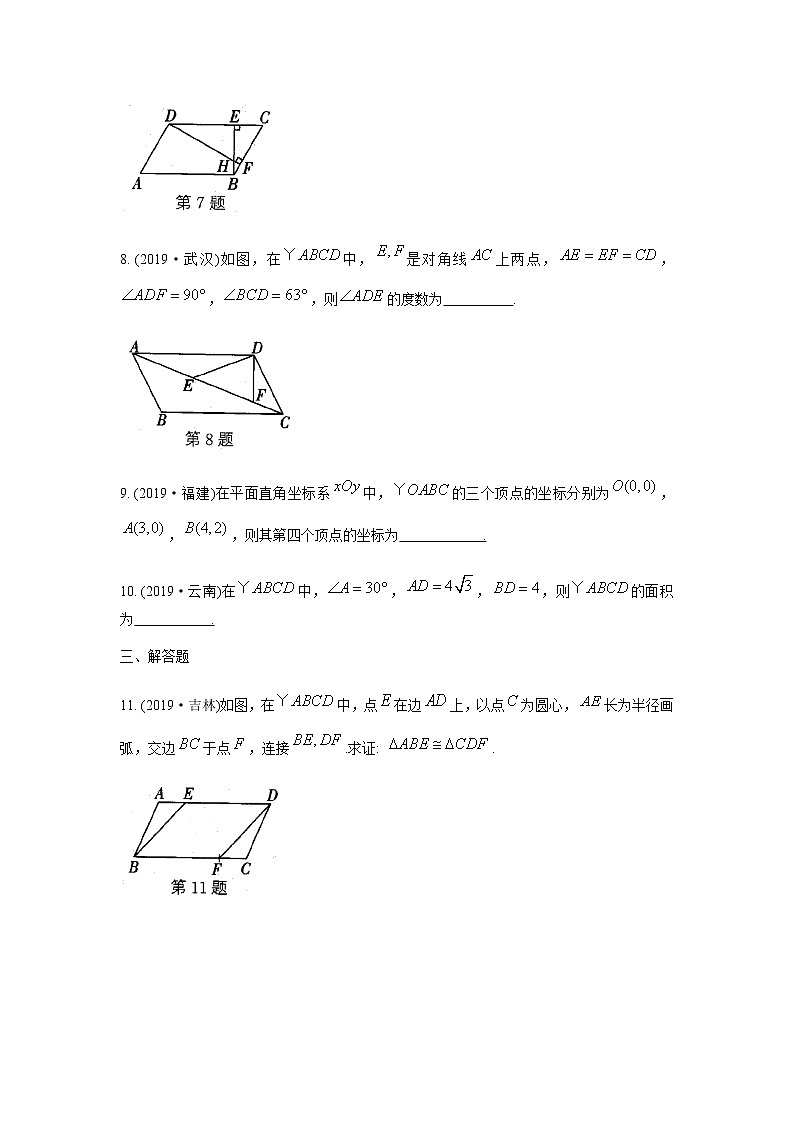 D E C
H F
A B
第 7 题
8. (2019·武汉)如图，在丫ABCD中，E,F是对角线AC上两点，AE=EF=CD，
∠ADF=90°，∠BCD=63°，则∠ADE的度数为__________.
A D
E F
B C
第 8 题
9. (2019·福建)在平面直角坐标系xOy中，丫OABC的三个顶点的坐标分别为O(0,0)，
A(3,0)，B(4,2)，则其第四个顶点的坐标为____________.
10. (2019·云南)在丫ABCD中，∠A=30°，AD=4√3，BD=4，则丫ABCD的面积
为___________.
三、解答题
11. (2019·吉林)如图，在丫ABCD中，点E在边AD上，以点C为圆心，AE长为半径画
弧，交边BC于点F，连接BE,DF.求证: ΔABE≅ΔCDF.
A E D
B F C
第 11 题